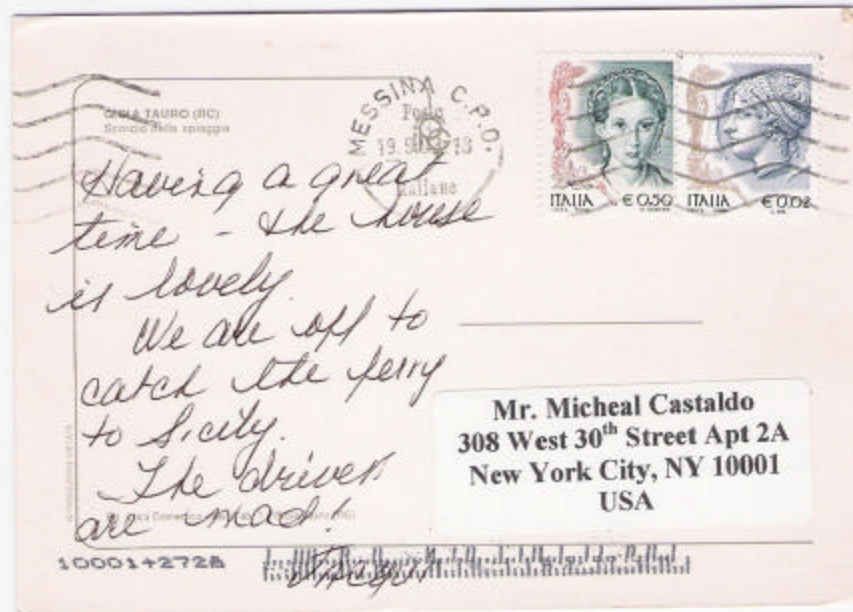 GIOIA TAURO (RC)
Scorcio della spiaggia
MESSINA C.P.O.
Poste
Italiane
ITALIA € 0,50
ITALIA € 0,02
Having a great
time - the house
is lovely.
We are off to
catch the ferry
to Sicily.
The drivers
are mad!
Mr. Micheal Castaldo
308 West 30th Street Apt 2A
New York City, NY 10001
USA
10001+2728